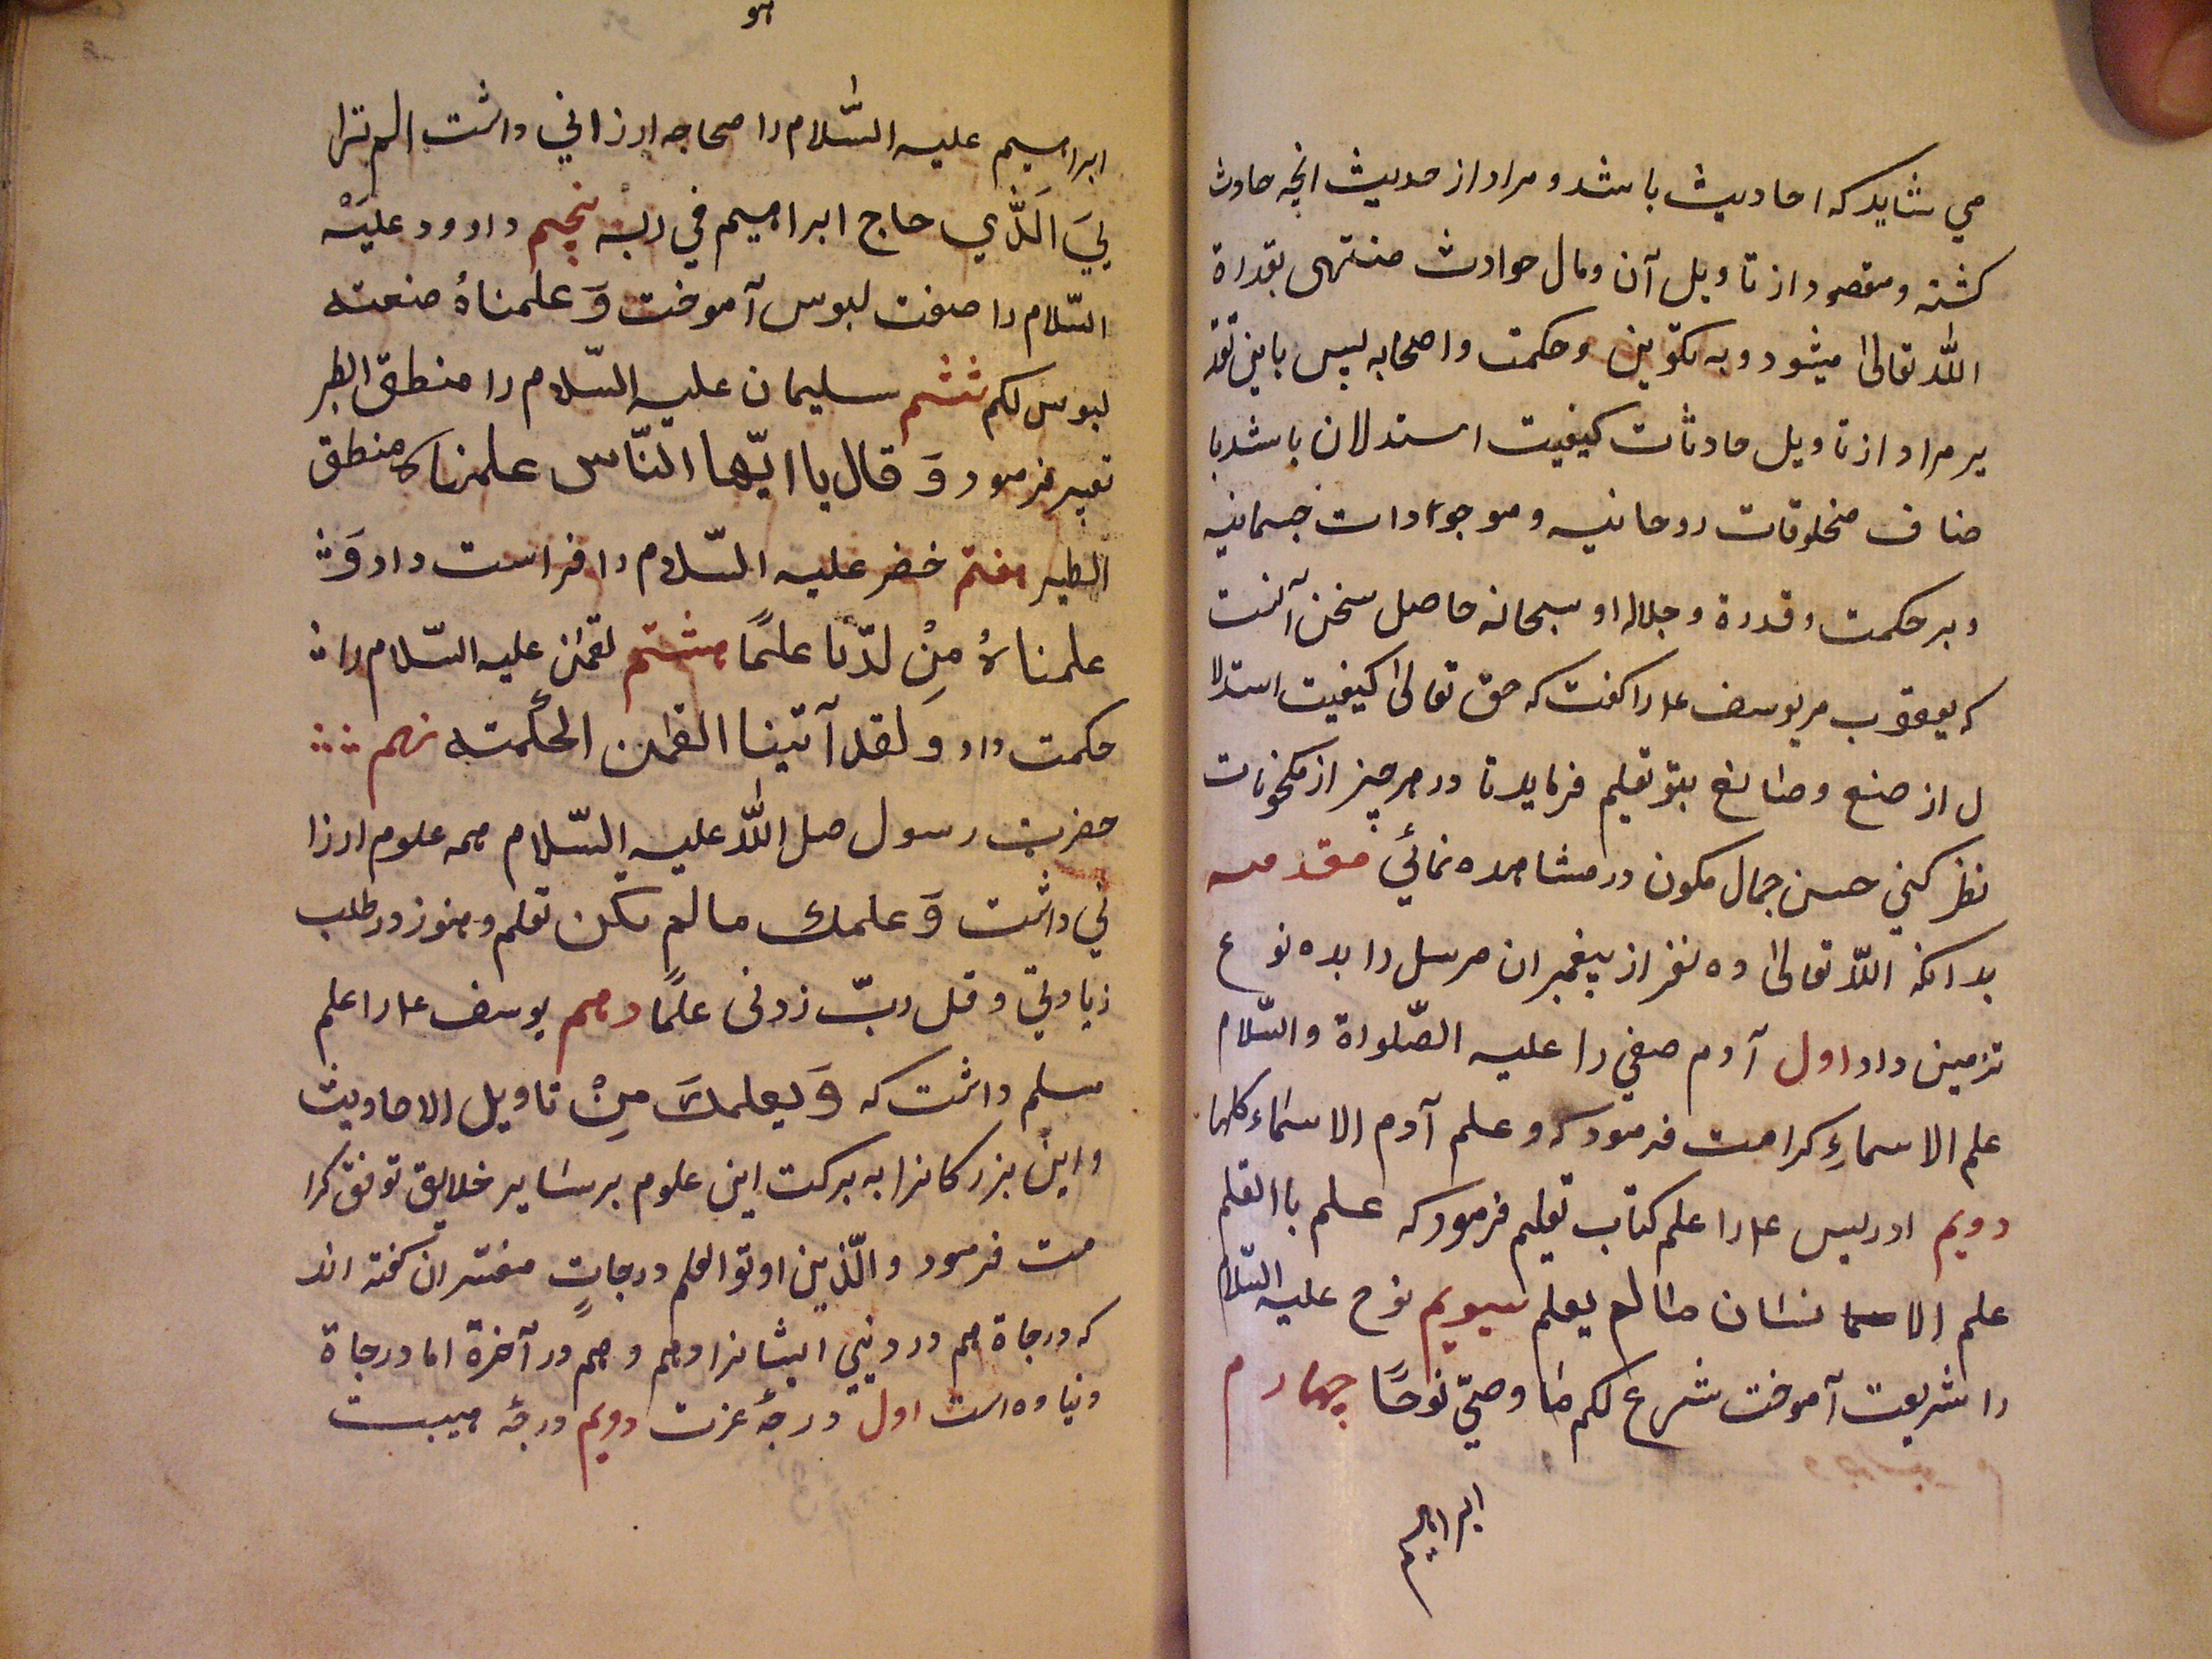 می شاید که احادیث باشد و مراد از حدیث انچه حادث
کشته و مقصود از تاویل آن ومال حوادث منتهی بقدراة
اللّه تعالی میشود و به تکوین و حکمت واصحابه پس باین تقد
یر مراد از تاویل حادثات کیفیت استدلان باشد با
صناف مخلوقات روحانیه و موجوادات جسمانیه
و بر حکمت و قدرة و جلاله او سبحانه حاصل سخن آنست
که یعقوب مر یوسف ع‌ا را کفت که حق تعالی کیفیت استدلا
ل از صنع و صانع بتو تعلیم فرماید تا در هر چیز از مکونات
نظر کني حسن جمال مکون در مشاهده نمائي مقدمه
بدانکه اللّه تعالی ده نفر از پیغمبران مرسل را بده نوع
تزیین داد اول آدم صفي را علیه الصّلواة والسّلام
علم الاسماءِ کرامت فرمود که و علم آدم الاسماء کلها
دویم ادریس ع‌ا را علم کتاب تعلیم فرمود که علم باالقلم
علم الانسان مالم یعلم سیویم نوح علیه السّلام
را شریعت آموخت شرع لکم ما وصيّ نوحًا چهارم
ابراهیم
هو
ابراهیم علیه السّلام را محاجه ارزاني داشت الم ترا
ليَ الَّذي حاج ابراهیم في ربه پنجم داوود علیَْه
السّلام را صفت لبوس آموخت وَ علمناهُ صنعته
لبوس لکم ششم سلیمان علیه السّلام را منطق الطیر
تعبیر فرمود وَ قال یا ایّها النّاس علمناه منطق
الطیر هفتم خضر علیه السّلام را فراست داد وَ
علمناهُ مِنْ لدّنا علمًا هشتم لقمٰن علیه السّلام را
حکمت داد وَ لقد آتینا القمٰن الحکْمته نهم
حضرت رسول صلی اللّه علیه السّلام همه علوم ارزا
ني داشت وَ علمك مالم یکن تعلم و هنوز در طلب
زیادتي و قل ربّ زدنی علمًا دهم یوسف ع‌ا را علم
مسلم داشت که وَ یعلمكَ مِنْ تاویل الاحادیث
و این بزرکانرا به برکت این علوم بر سایر خلایق توفق کرا
مت فرمود والّذین اوتو العلم درجاتٍ مفسّران کفته اند
که درجاة هم در دنیي ایشانرا دهم و هم در آخرة اما درجاة
دنیا ده است اول درجهٔ عزت دویم درجهٔ هیبت